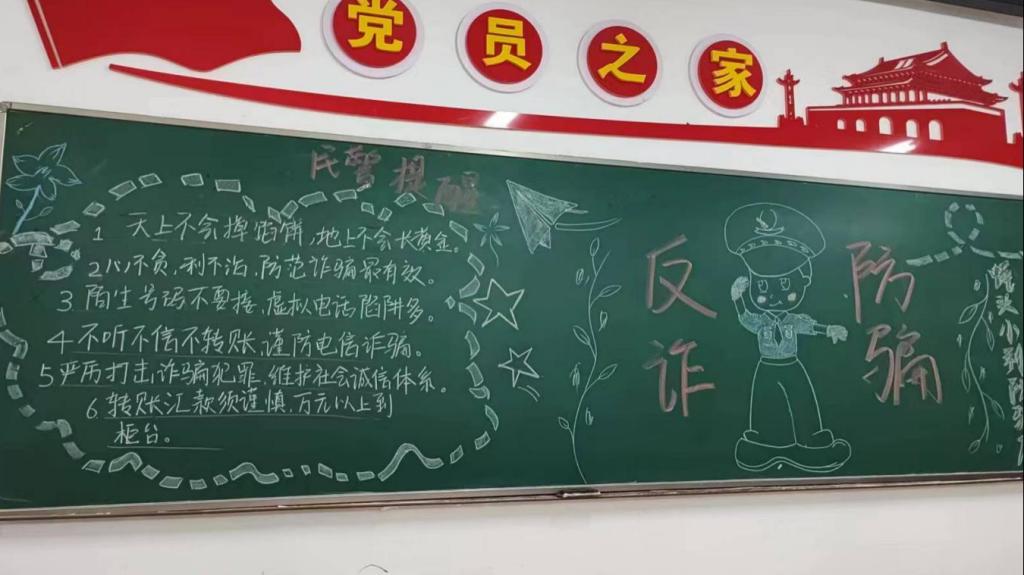 党员之家
民警提醒
1 天上不会掉馅饼,地上不会长黄金。
2心不贪,利不沾,防范诈骗最有效。
3 陌生号码不要接,虚拟电话陷阱多。
4 不听不信不转账,谨防电信诈骗。
5严厉打击诈骗犯罪,维护社会诚信体系。
6 转账汇款须谨慎,万元以上到
柜台。
反诈
防骗